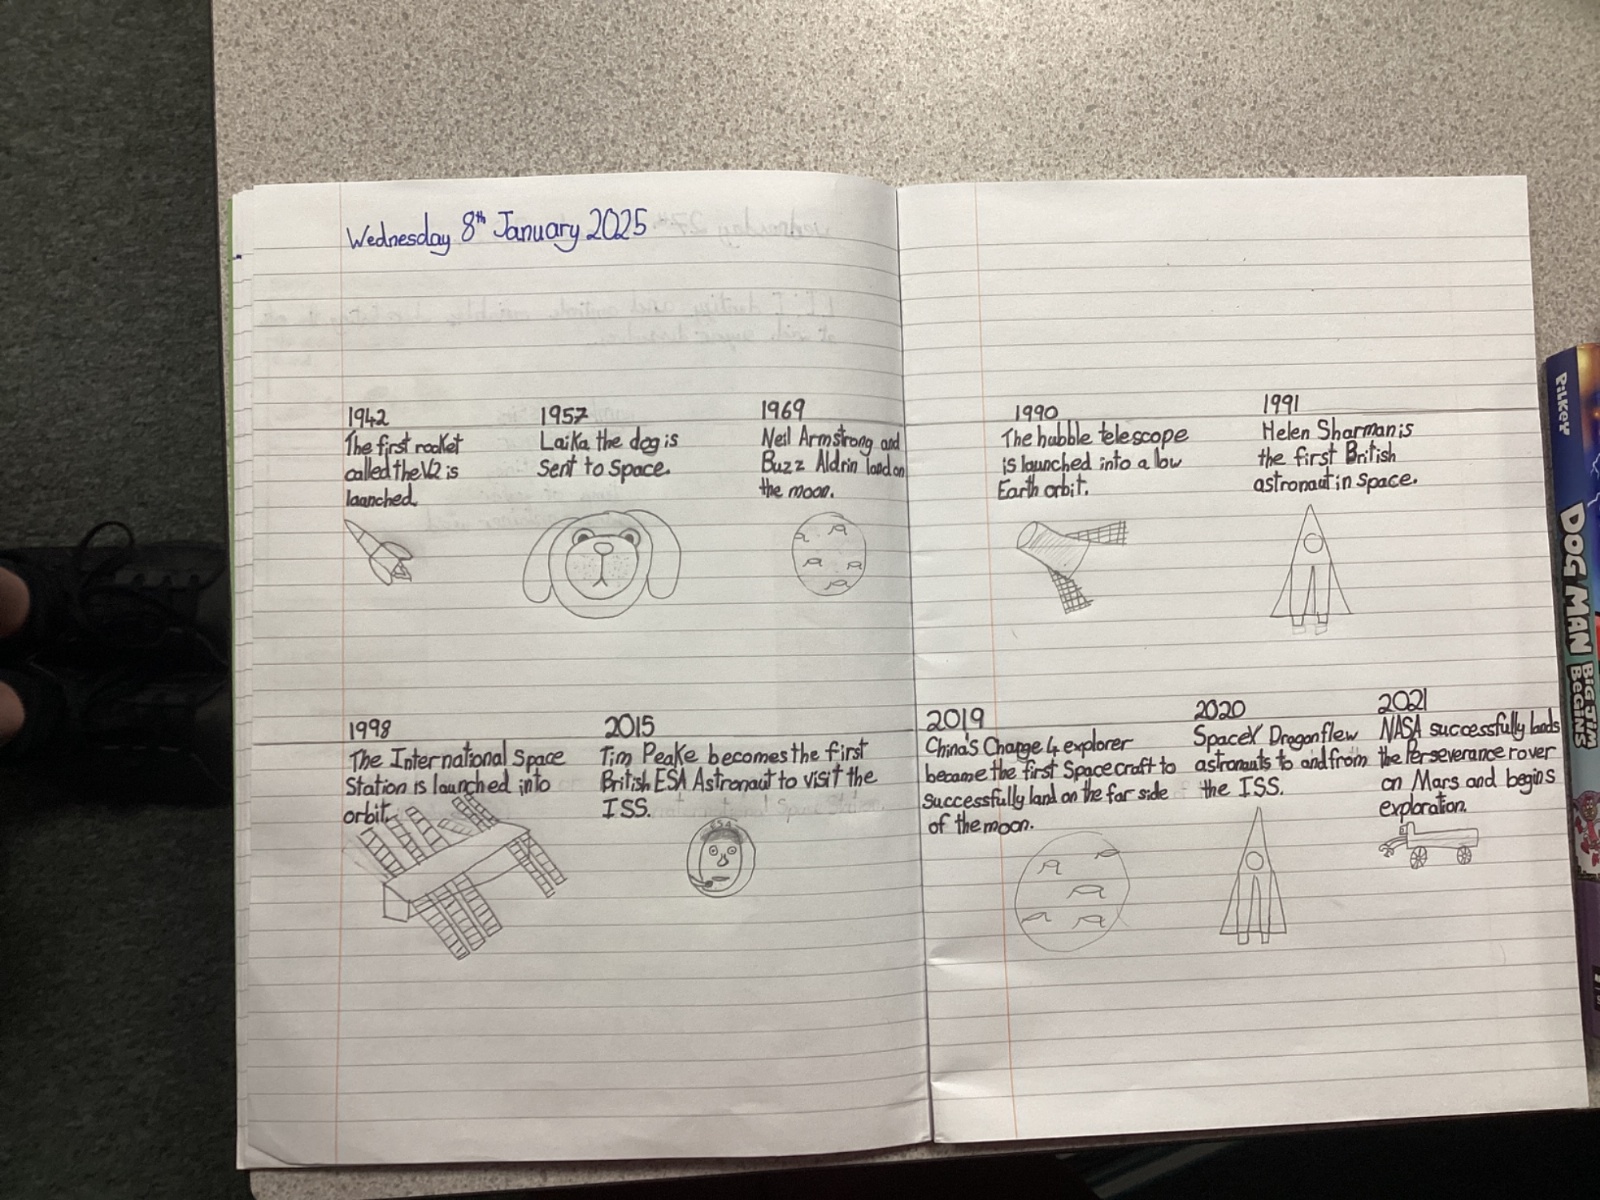 Wednesday 8th January 2025
1942
The first rocket
called the V2 is
launched.
1957
Laika the dog is
sent to space.
1969
Neil Armstrong and
Buzz Aldrin land on
the moon.
1990
The hubble telescope
is launched into a low
Earth orbit.
1991
Helen Sharman is
the first British
astronaut in space.
1998
The International Space
Station is launched into
orbit.
2015
Tim Peake becomes the first
British ESA Astronaut to visit the
ISS.
ESA
2019
China's Change 4 explorer
became the first Spacecraft to
successfully land on the far side
of the moon.
2020
SpaceX Dragon flew
astronauts to and from
the ISS.
2021
NASA successfully lands
the Perseverance rover
on Mars and begins
exploration.
PILKEY
DOG MAN
BIG JIM
BEGINS